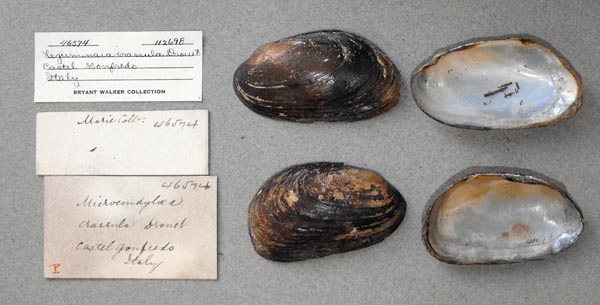 46574 112698
Leguminaia crassula Drouet
Castel Gonfredo
Italy
BRYANT WALKER COLLECTION
Marie Coll.
46574
46574
Microcondylaea
crassula Drouet
Castel Gonfredo
Italy
P